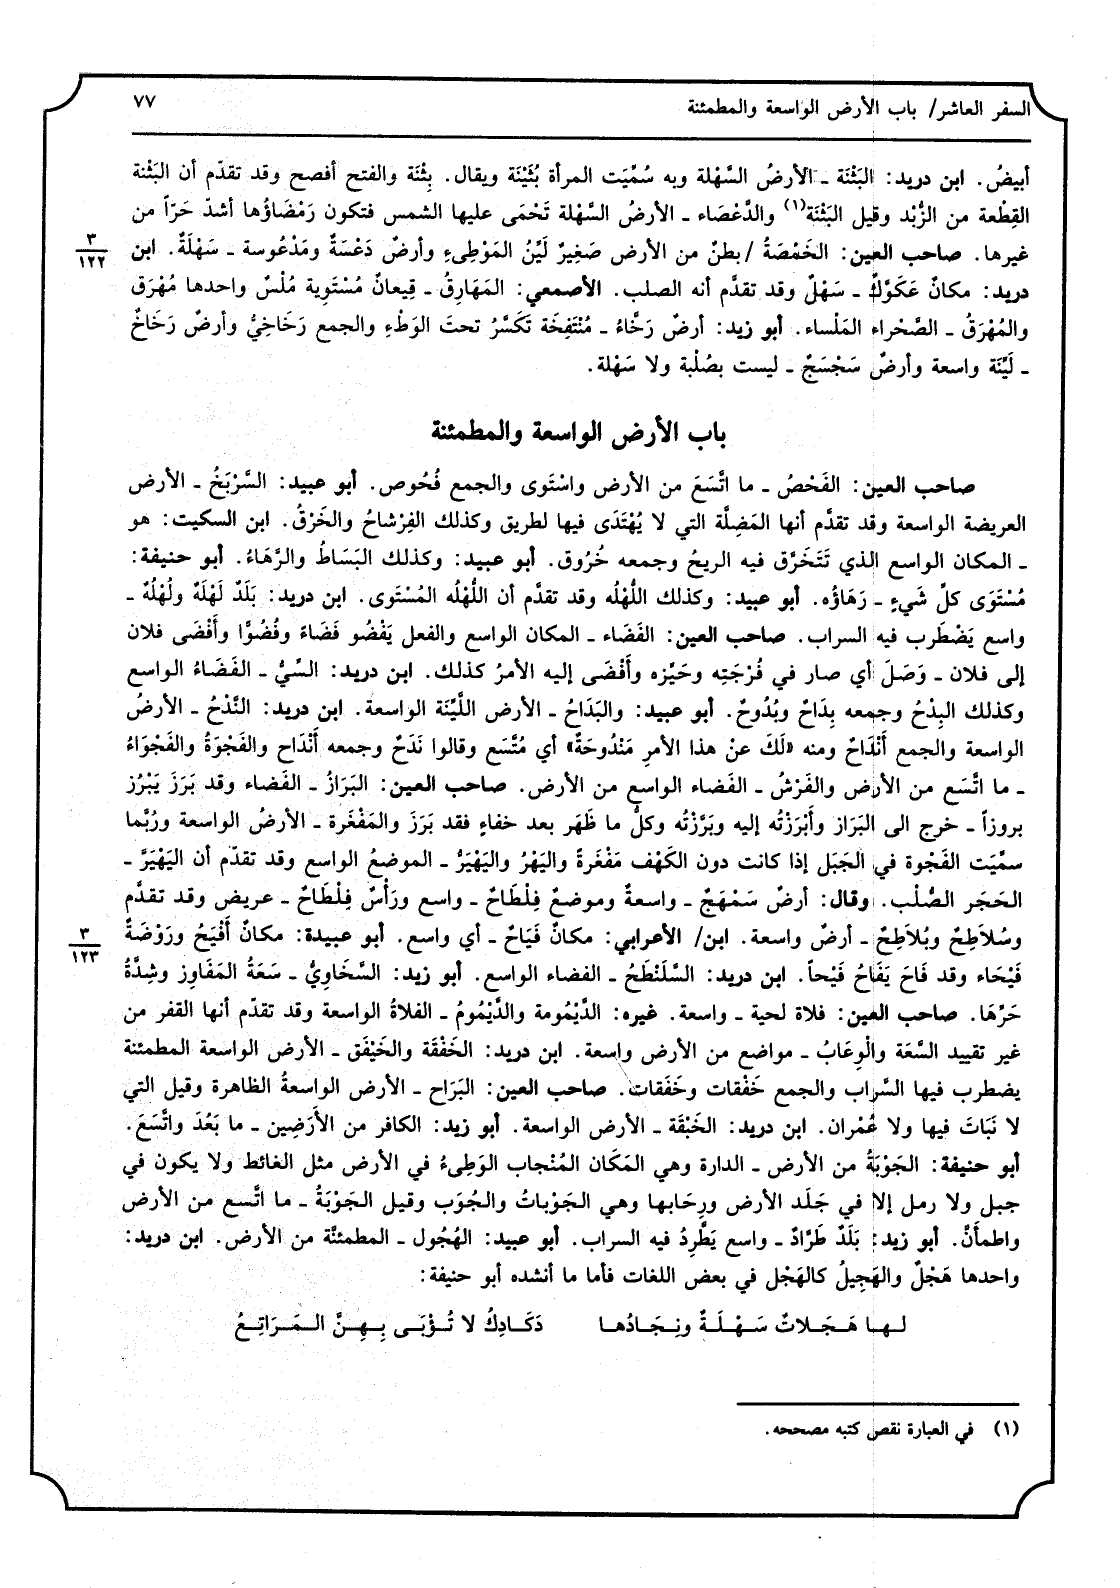 السفر العاشر/ باب الأرض الواسعة والمطمئنة ٧٧
أبيضُ. ابن دريد: البَثْنَة ـ الأرضُ السَّهْلة وبه سُمِّيَت المرأة بُثَيْنَة ويقال. بِثْنَة والفتح أفصح وقد تقدّم أن البَثْنة
القِطْعة من الزُّبْد وقيل البَثْنَة(١) والدَّعْصَاء ـ الأرضُ السَّهْلة تَحْمَى عليها الشمس فتكون رَمْضَاؤُها أشدّ حَرّاً من
غيرها. صاحب العين: الخَمْصَةُ /بطنٌ من الأرض صَغِيرٌ لَيِّنُ المَوْطِىءِ وأرضٌ دَعْسَةٌ ومَدْعُوسة ـ سَهْلَةٌ. ابن
٣
١٢٢
دريد: مكانٌ عَكَوَّكٌ ـ سَهْلٌ وقد تقدَّم أنه الصلب. الأصمعي: المَهَارِقُ ـ قِيعانٌ مُسْتَوِية مُلْسٌ واحدها مُهْرَق
والمُهْرَقُ ـ الصَّحْراء المَلْساء. أبو زيد: أرضٌ رَخَّاءُ ـ مُنْتَفِخَة تَكَسَّرُ تحتَ الوَطْءِ والجمع رَخَاخِيُّ وأرضٌ رَخَاخٌ
ـ لَيِّنَة واسعة وأرضٌ سَجْسَجٌ ـ ليست بصُلْبة ولا سَهْلة.
باب الأرض الواسعة والمطمئنة
صاحب العين: الفَحْصُ ـ ما اتَّسَعَ من الأرض واسْتَوى والجمع فُحُوص. أبو عبيد: السَّرْبَخُ ـ الأرض
العريضة الواسعة وقد تقدَّم أنها المَضِلَّة التي لا يُهْتَدَى فيها لطريق وكذلك الفِرْشاحُ والخَرْقُ. ابن السكيت: هو
ـ المكان الواسع الذي تَتَخَرَّق فيه الريحُ وجمعه خُرُوق. أبو عبيد: وكذلك البَسَاطُ والرَّهَاءُ. أبو حنيفة:
مُسْتَوَى كلِّ شَيءٍ ـ رَهَاؤُه. أبو عبيد: وكذلك اللُّهْلُه وقد تقدَّم أن اللُّهْلُه المُسْتَوى. ابن دريد: بَلَدٌ لَهْلَهٌ ولُهْلُهٌ ـ
واسع يَضْطَرِب فيه السراب. صاحب العين: الفَضَاء ـ المكان الواسع والفعل يَفْضُو فَضَاءً وفُضُوًّا وأَفْضَى فلان
إلى فلان ـ وَصَلَ أي صار في فُرْجَتِه وحَيِّزِه وأَفْضَى إليه الأمرُ كذلك. ابن دريد: السِّيُّ ـ الفَضَاءُ الواسع
وكذلك البِدْحُ وجمعه بِدَاحٌ وبُدُوحٌ. أبو عبيد: والبَدَاحُ ـ الأرض اللَّيِّنَة الواسعة. ابن دريد: النَّدْحُ ـ الأرضُ
الواسعة والجمع أَنْدَاحٌ ومنه «لَكَ عنْ هذا الأمرِ مَنْدُوحَةٌ» أي مُتَّسَع وقالوا نَدَحٌ وجمعه أَنْدَاح والفَجْوَةُ والفَجْوَاءُ
ـ ما اتَّسَع من الأرض والفَرْشُ ـ الفَضاء الواسع من الأرض. صاحب العين: البَرَازُ ـ الفَضاء وقد بَرَزَ يَبْرُز
بروزاً ـ خرج الى البَرَاز وأَبْرَزْتُه إليه وبَرَّزْتُه وكلُّ ما ظَهَر بعد خفاءٍ فقد بَرَزَ والمَفْغَرة ـ الأرضُ الواسعة ورُبَّما
سمِّيَت الفَجْوة في الجَبَل إذا كانت دون الكَهْف مَفْغَرةً واليَهْرُ واليَهْيَرُّ ـ الموضعُ الواسع وقد تقدّم أن اليَهْيَرَّ ـ
الحَجَر الصُّلْب. وقال: أرضٌ سَمْهَجٌ ـ واسعةٌ وموضعٌ فِلْطَاحٌ ـ واسع ورَأْسٌ فِلْطَاحٌ ـ عريض وقد تقدَّم
وسُلاَطِحٌ وبُلاَطِحٌ ـ أرضٌ واسعة. ابن/ الأعرابي: مكانٌ فَيَاحٌ ـ أي واسع. أبو عبيدة: مكانٌ أَفْيَحُ ورَوْضَةٌ
٣
١٢٣
فَيْحَاء وقد فَاحَ يَفَاحُ فَيْحاً. ابن دريد: السَّلَنْطَحُ ـ الفضاء الواسع. أبو زيد: السَّخَاوِيُّ ـ سَعَةُ المَفَاوِز وشِدَّةُ
حَرِّهَا. صاحب العين: فلاة لحية ـ واسعة. غيره: الدَّيْمُومة والدَّيْمُومُ ـ الفلاةُ الواسعة وقد تقدّم أنها القفر من
غير تقييد السَّعَة والْوِعَابُ ـ مواضع من الأرض واسعة. ابن دريد: الخَفْقَة والخَيْفَق ـ الأرض الواسعة المطمئنة
يضطرب فيها السَّراب والجمع خَفْقات وخَفَقات. صاحب العين: البَرَاح ـ الأرض الواسعةُ الظاهرة وقيل التي
لا نَبَاتَ فيها ولا عُمْران. ابن دريد: الخَبْقَة ـ الأرض الواسعة. أبو زيد: الكافر من الأَرَضِين ـ ما بَعُدَ واتَّسَعَ.
أبو حنيفة: الجَوْبَةُ من الأرض ـ الدارة وهي المَكَان المُنْجاب الوَطِىءُ في الأرض مثل الغائط ولا يكون في
جبل ولا رمل إلا في جَلَد الأرض ورِحَابها وهي الجَوْباتُ والجُوَب وقيل الجَوْبَةُ ـ ما اتَّسع من الأرض
واطمأَنَّ. أبو زيد: بَلَدٌ طَرَّادٌ ـ واسع يَطَّرِدُ فيه السراب. أبو عبيد: الهُجُول ـ المطمئنَّة من الأرض. ابن دريد:
واحدها هَجْلٌ والهَجِيلُ كالهَجْل في بعض اللغات فأما ما أنشده أبو حنيفة:
لها هَجَلاتٌ سَهْلَةٌ ونِجَادُها دَكَادِكُ لا تُؤْبَى بِهِنَّ المَرَاتِعُ
(١) في العبارة نقص كتبه مصححه.